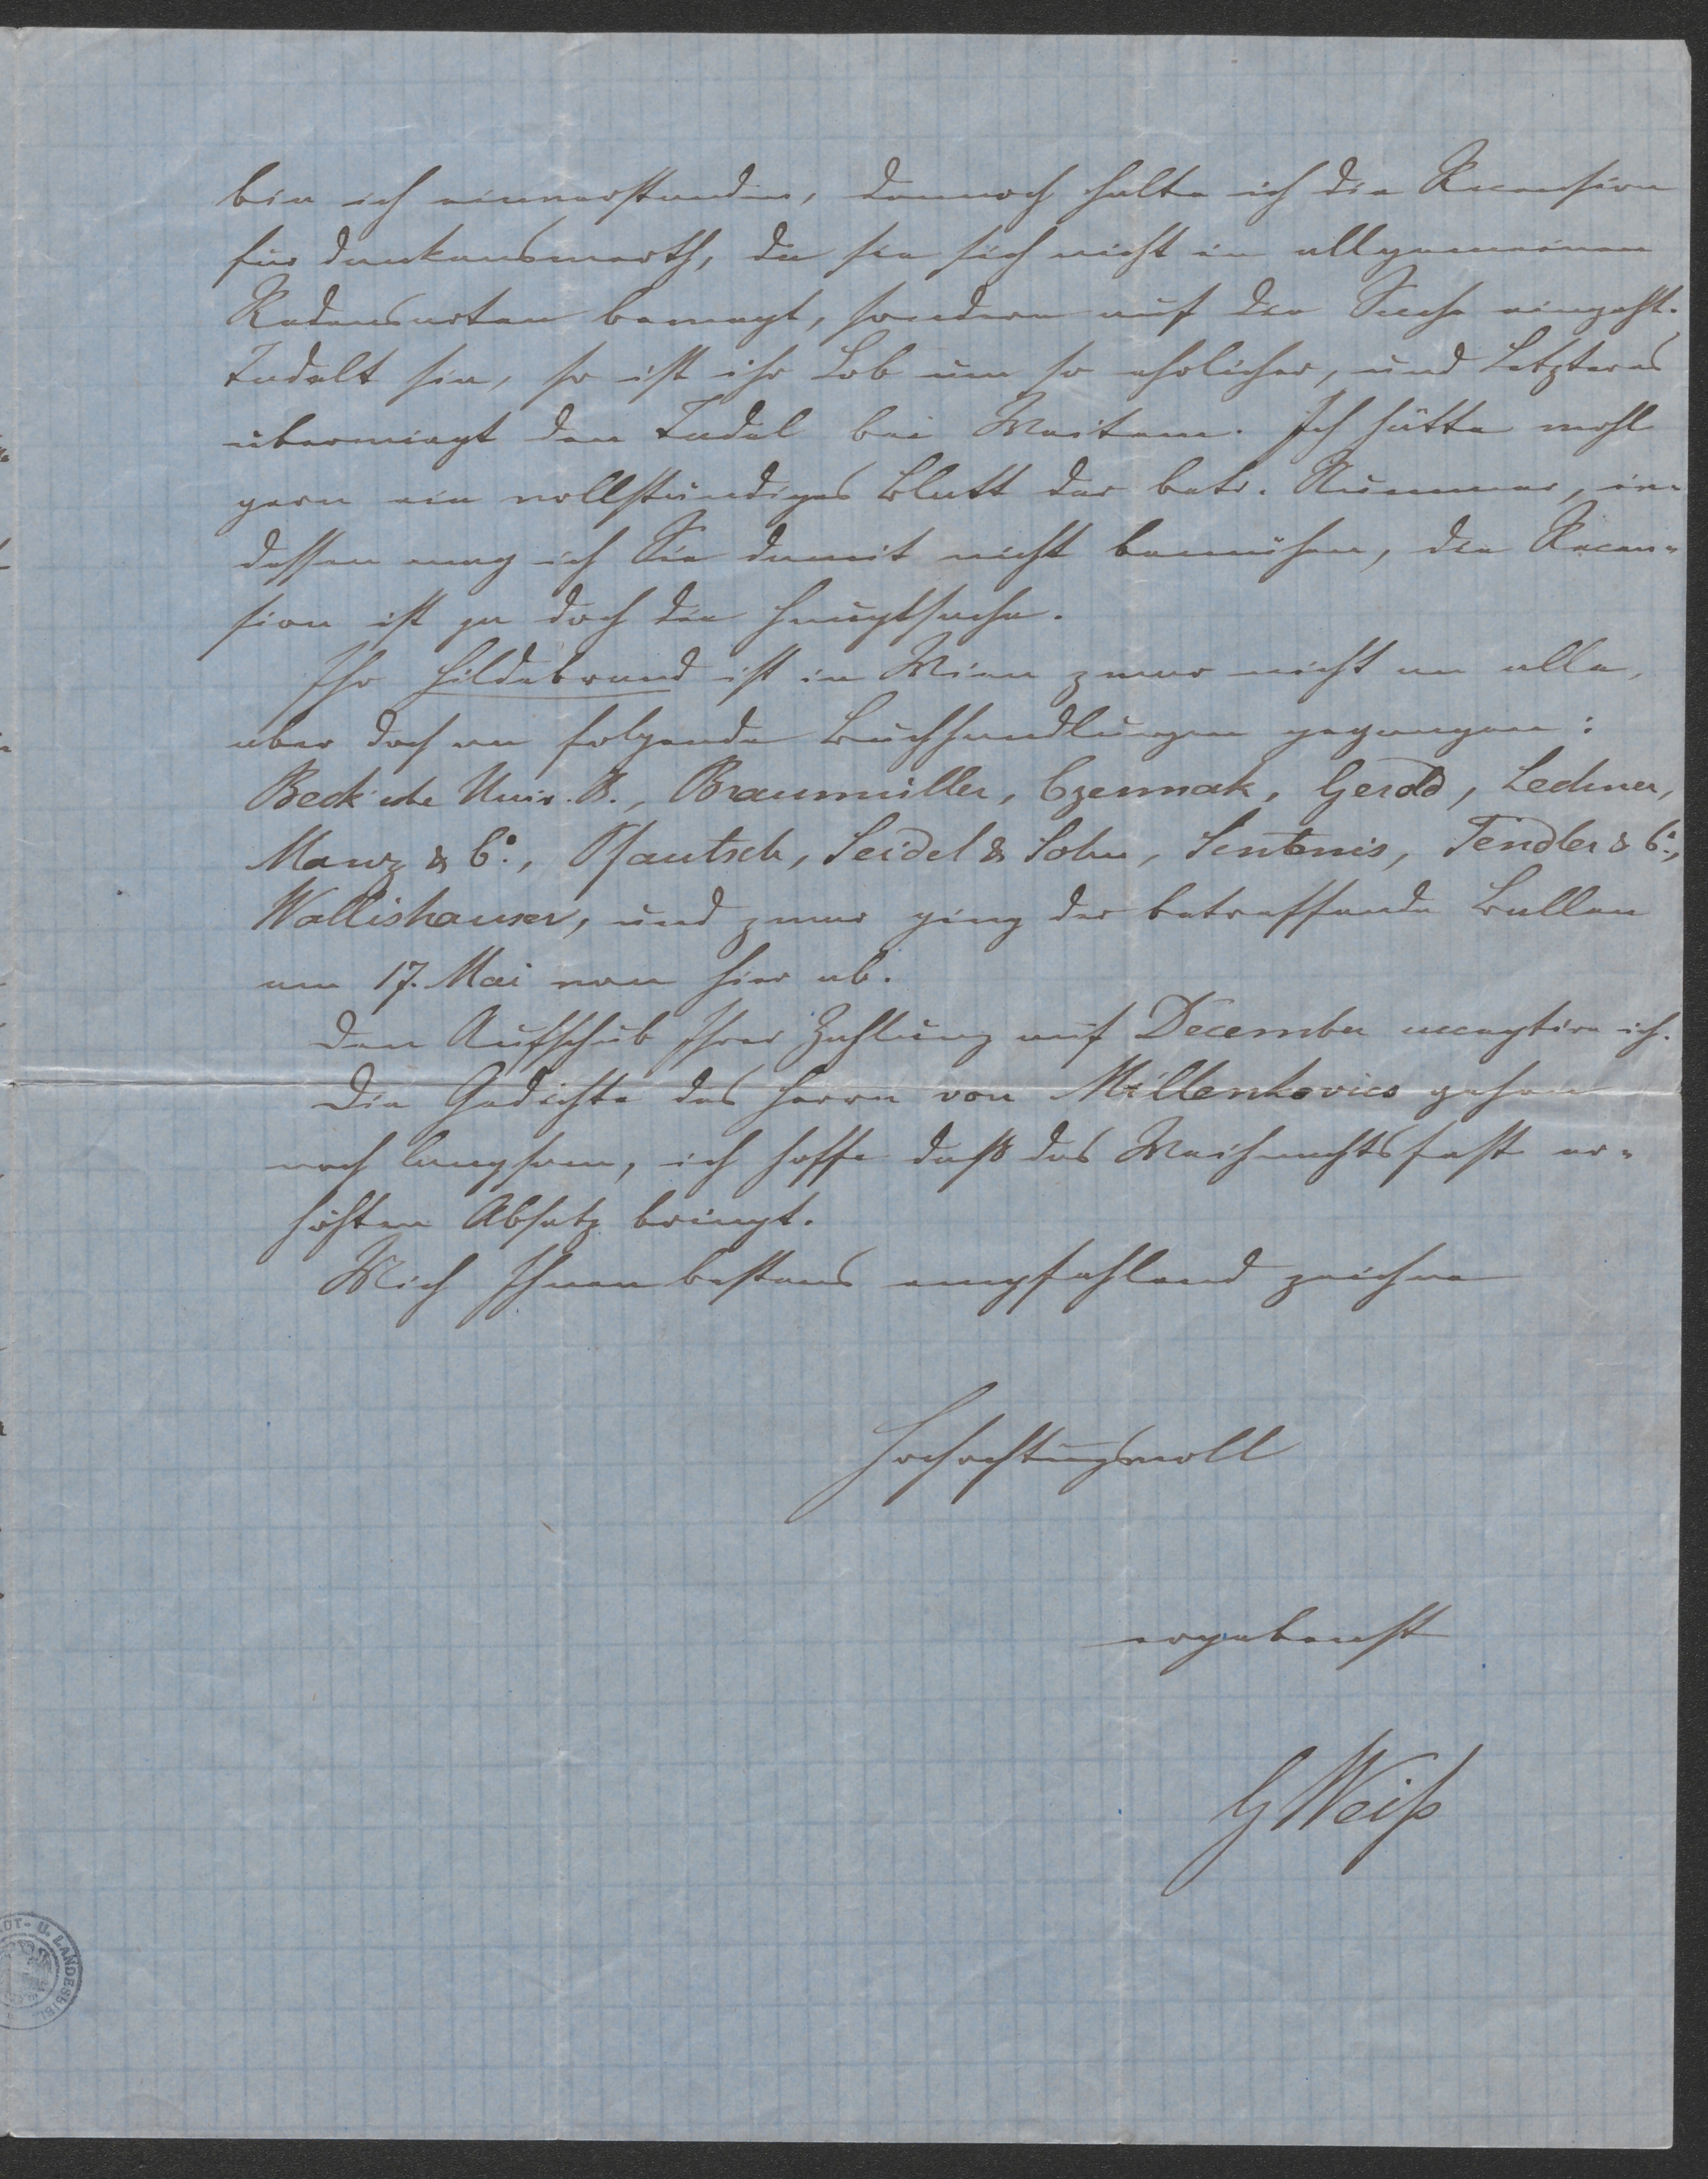 bin ich einverstanden, dennoch halte ich die Recension
für dankenswerth, da sie sich nicht in allgemeinen
Redensarten bewegt, sondern auf die Sache eingeht.
Tadelt sie, so ist ihr Lob um so ehrlicher, und Letzteres
überwiegt den Tadel bei Weitem. Ich hätte wohl
gern ein vollständiges Blatt der betr. Nummer, in-
dessen mag ich Sie damit nicht bemühen, die Recen-
sion ist ja doch die Hauptsache.
Ihr Hildebrand ist in Wien zwar nicht an alle,
aber doch an folgende Buchhandlungen gegangen:
Beck'sche Univ. B., Braumüller, Czermak, Gerold, Lechner,
Manz & Co., Pfautsch, Seidel & Sohn, Sintenis, Tendler & Co.,
Wallishauser, und zwar ging der betreffende Ballen
am 17. Mai von hier ab.
Den Aufschub Ihrer Zahlung auf December acceptire ich.
Die Gedichte des Herrn von Millenkovics gehen
noch langsam, ich hoffe daß das Weihnachtsfest er-
höhten Absatz bringt.
Mich Ihnen bestens empfehlend zeichne
Hochachtungsvoll
ergebenst
G Weiß
U. LANDESBIBL